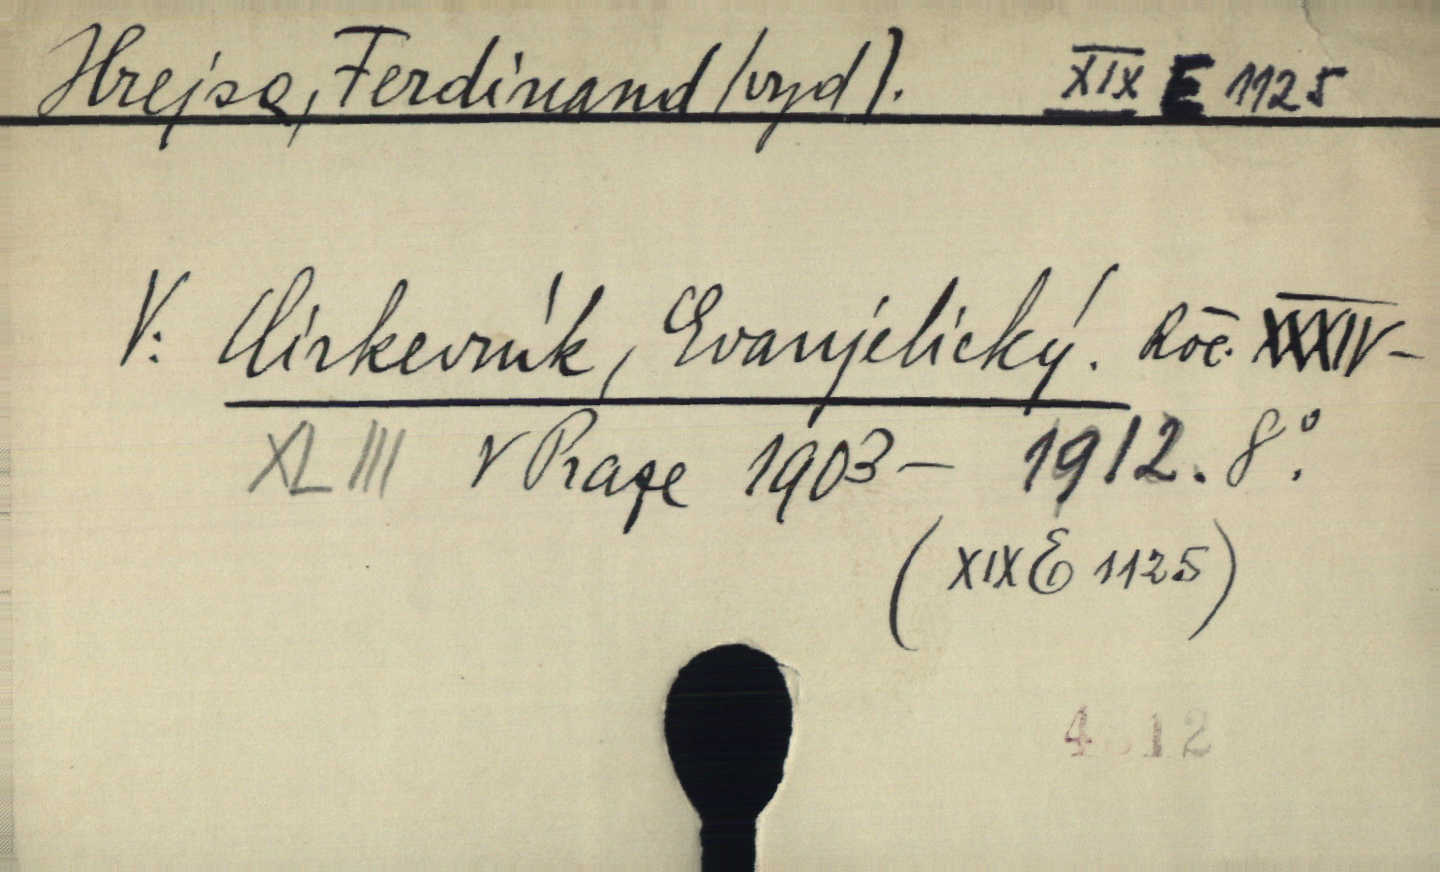 Hrejsa, Ferdinand (vyd). XIX E 1125
V: Církevník, Evanjelický. Roč. XXXIV-
XLIII v Praze 1903 - 1912. 8°.
(XIX E 1125)